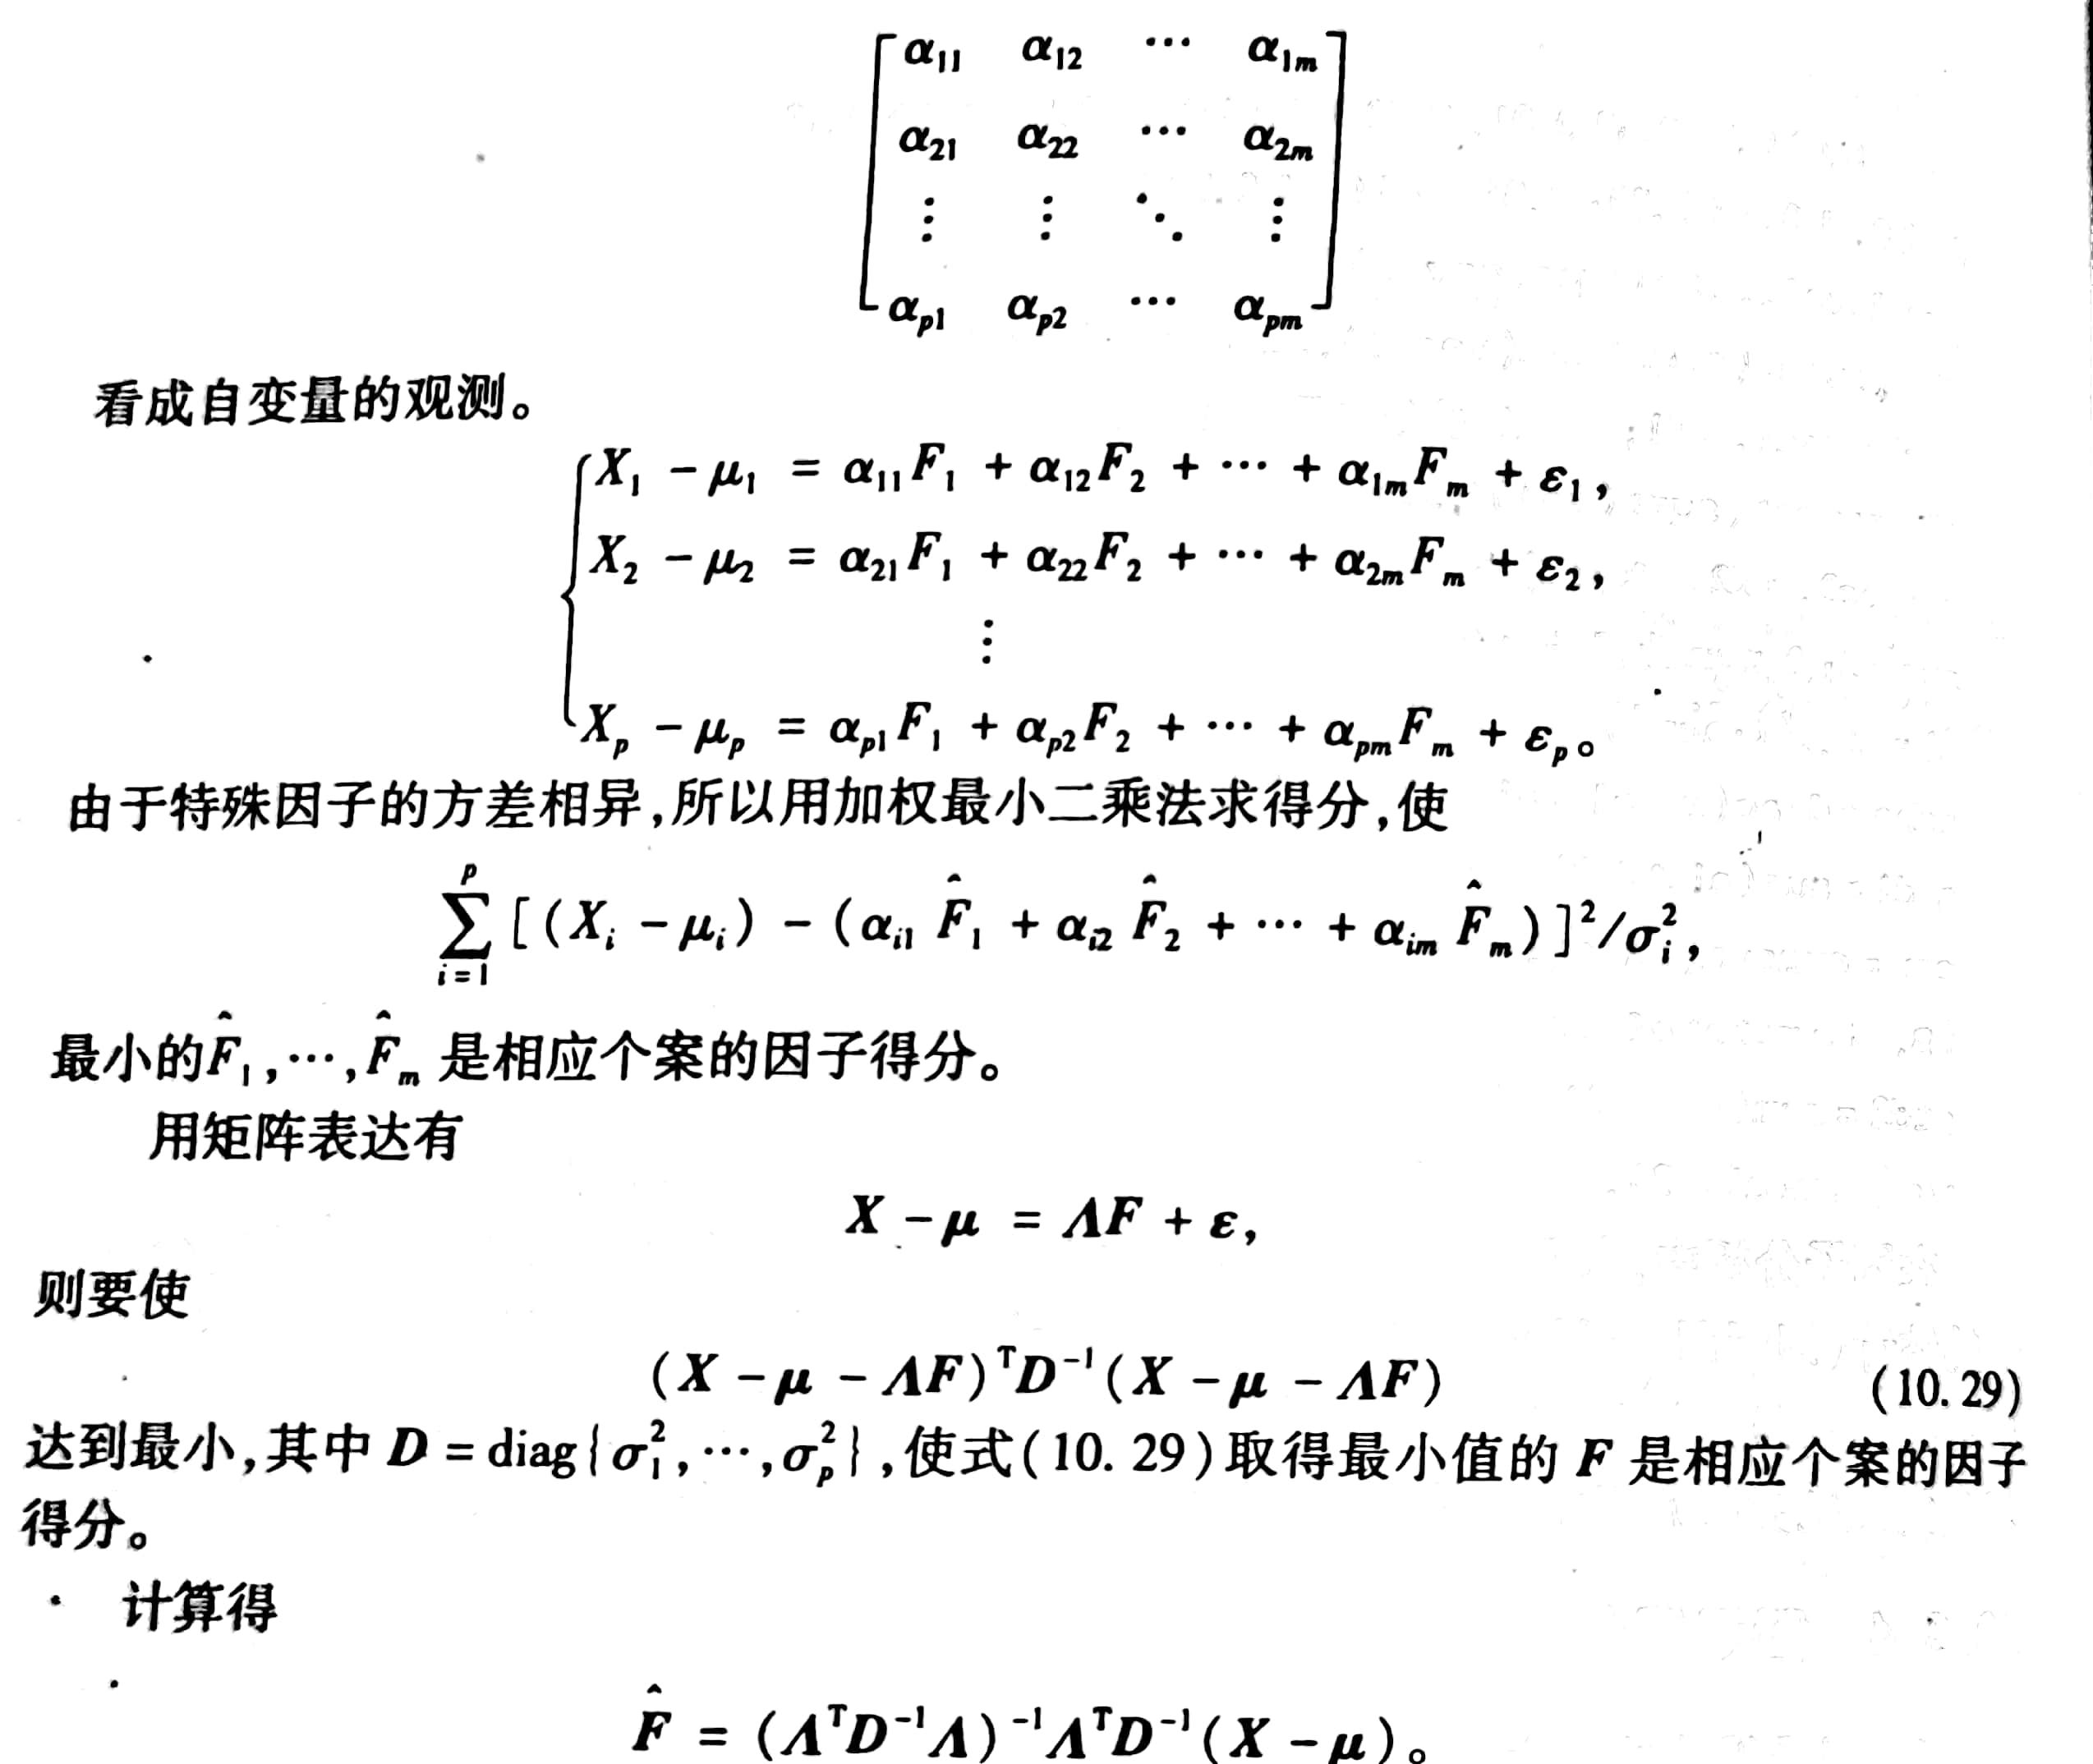 α₁₁ α₁₂ ⋯ α₁ₘ
α₂₁ α₂₂ ⋯ α₂ₘ
⋮ ⋮ ⋱ ⋮
αₚ₁ αₚ₂ ⋯ αₚₘ
看成自变量的观测。
X₁ − μ₁ = α₁₁F₁ + α₁₂F₂ + ⋯ + α₁ₘFₘ + ε₁,
X₂ − μ₂ = α₂₁F₁ + α₂₂F₂ + ⋯ + α₂ₘFₘ + ε₂,
⋮
Xₚ − μₚ = αₚ₁F₁ + αₚ₂F₂ + ⋯ + αₚₘFₘ + εₚ。
由于特殊因子的方差相异,所以用加权最小二乘法求得分,使
∑ᵢ₌₁ᵖ [(Xᵢ − μᵢ) − (αᵢ₁ F̂₁ + αᵢ₂ F̂₂ + ⋯ + αᵢₘ F̂ₘ)]²/σᵢ²,
最小的F̂₁,⋯,F̂ₘ 是相应个案的因子得分。
用矩阵表达有
X − μ = ΛF + ε,
则要使
(X − μ − ΛF)ᵀD⁻¹(X − μ − ΛF) (10.29)
达到最小,其中 D = diag{σ₁²,⋯,σₚ²},使式(10.29)取得最小值的 F 是相应个案的因子
得分。
计算得
F̂ = (ΛᵀD⁻¹Λ)⁻¹ΛᵀD⁻¹(X − μ)。